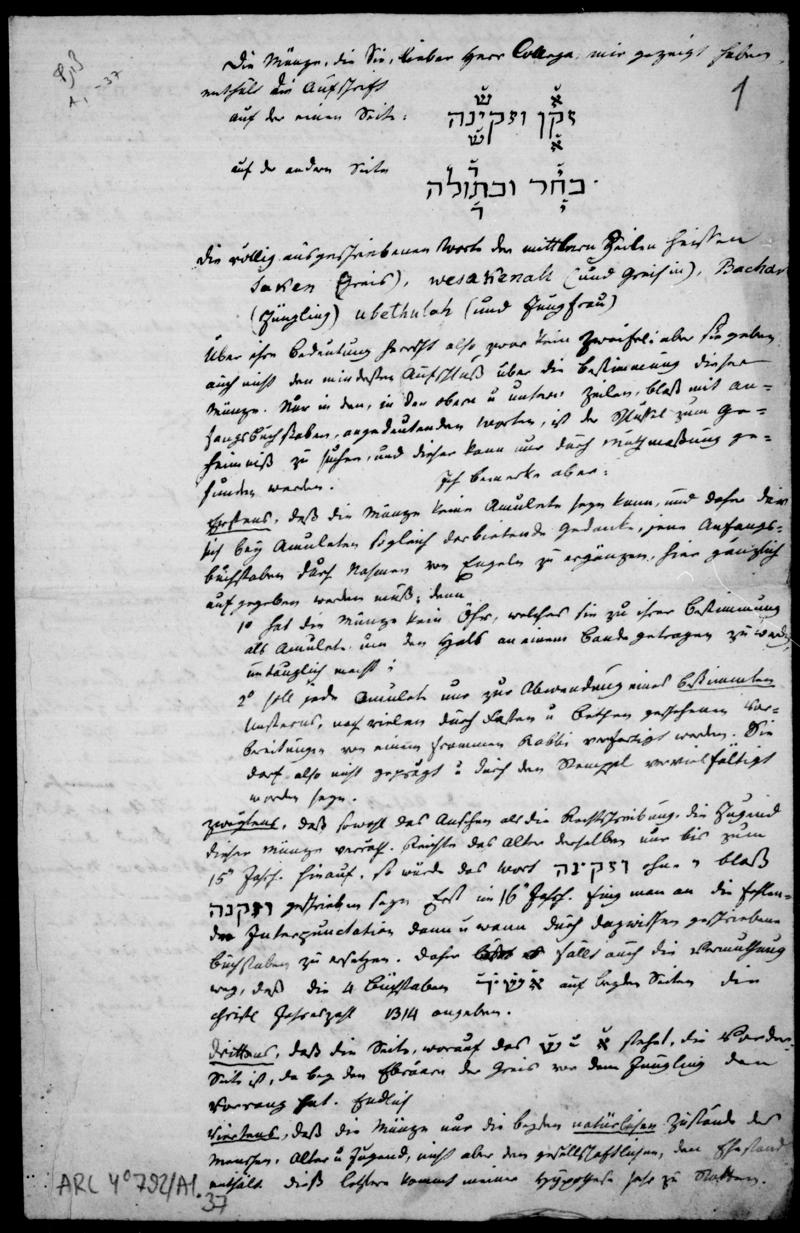 A, -37
1
Die Münze, die Sie, lieber Herr Collega, mir gezeigt haben,
enthält die Aufschrift
auf der einen Seite:
א̈ ש̈
זקן וזקינה
א̈ ש̈
auf der andern Seite
י̈ ר̈
בחר ובתולה
י̈ ר̈
Die völlig ausgeschriebenen Worte der mittlern Zeilen heissen
Saken (Greis), wesakenah (und Greisin), Bachar
(Jüngling) ubethulah (und Jungfrau)
Über ihre Bedeutung herrscht also zwar kein Zweifel; aber sie geben
auch nicht den mindesten Aufschluß über die Bestimmung dieser
Münze. Nur in den, in der obern u untern Zeilen, bloß mit An=
fangsbuchstaben, angedeutenden Worten, ist der Schlüssel zum Ge=
heimniß zu suchen, und dieser kann nur durch Muthmaßung ge=
funden werden. Ich bemerke aber:
Erstens, daß die Münze keine Amulete seyn kann, und daher der
sich bey Amuleten sogleich darbietende Gedanke, jene Anfangs=
buchstaben durch Nahmen von Engeln zu ergänzen, hier gänzlich
aufgegeben werden muß; denn
1º hat die Münze kein Öhr, welches sie zu ihrer Bestimmung
als Amulete, um den Hals an einem Bande getragen zu werden,
untauglich macht;
2º soll jede Amulete nur zur Abwendung eines bestimmten
Unsterns, nach vielen durch Fasten u Bethen geschehenen Vor=
bereitungen von einem frommen Rabbi verfertigt werden. Sie
darf also nicht geprägt u durch den Stempel vervielfältigt
worden seyn.
Zweytens, daß sowohl das Ansehen als die Rechtschreibung, die Jugend
dieser Münze verräth. Reichte das Alter derselben nur bis zum
15º Jahrh. hinauf, so würde das Wort וזקינה ohne י bloß
וזקנה geschrieben seyn. Erst im 16º Jahrh. fing man an die fehlen=
de Interpunctation dann u wann durch dazwischen geschriebene
Buchstaben zu ersetzen. Daher fällt auch die Vermuthung
weg, daß die 4 Buchstaben א̈ ש̈ י̈ ר̈ auf beyden Seiten die
christl Jahreszahl 1314 angeben.
Drittens, daß die Seite, worauf das א̈ u ש̈ steht, die Vorder=
Seite ist, da bey den Ebräern der Greis vor dem Jüngling den
Vorrang hat. Endlich
Viertens, daß die Münze nur die beyden natürlichen Zustände des
Menschen, Alter u Jugend, nicht aber den gesellschaftlichen, den Ehestand
enthält. Dieß letztere kommt meiner Hypothese sehr zu Statten.
ARC 4º 792/A1.
37